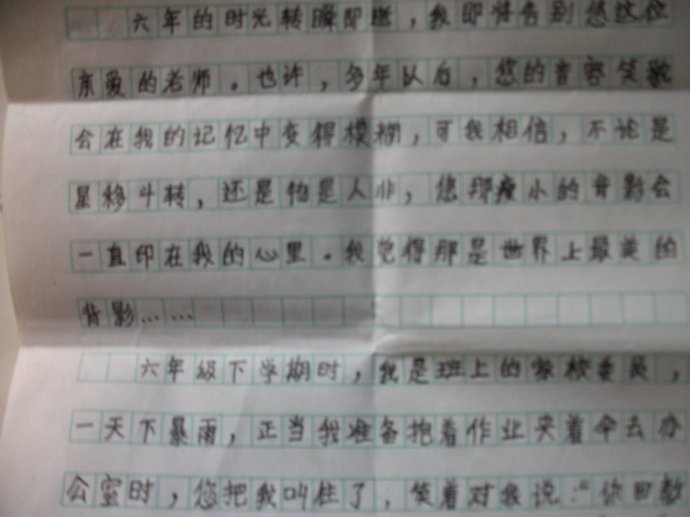 六年的时光转瞬即逝，我即将告别您这位
亲爱的老师。也许，多年以后，您的音容笑貌
会在我的记忆中变得模糊，可我相信，不论是
星移斗转，还是物是人非，您那瘦小的背影会
一直印在我的心里。我觉得那是世界上最美的
背影……
六年级下学期时，我是班上的学校委员，
一天下暴雨，正当我准备抱着作业夹着伞去办
公室时，您把我叫住了，笑着对我说：“你回教